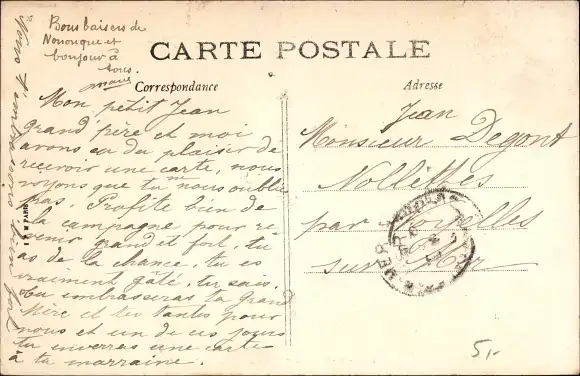 Bons baisers de
Nonouque et
bonjour à
tous.
CARTE POSTALE
Correspondance
Adresse
Mon petit Jean
grand'père et moi
avons eu du plaisir de
recevoir une carte, nous
voyons que tu m nous oublie
pas. Profite bien de
la campagne pour re
venir grand et fort, tu
as de la chance, tu es
vraiment gâté, tu sais.
Tu embrasseras ta grand
Mère et tes tantes pour
nous et un de ces jours
tu enverras une carte
à ta marraine.
Nous t'embrassons bien fort
PARIS
Jean
Monsieur Degont
Nollettes
par
sur Mer
5,-